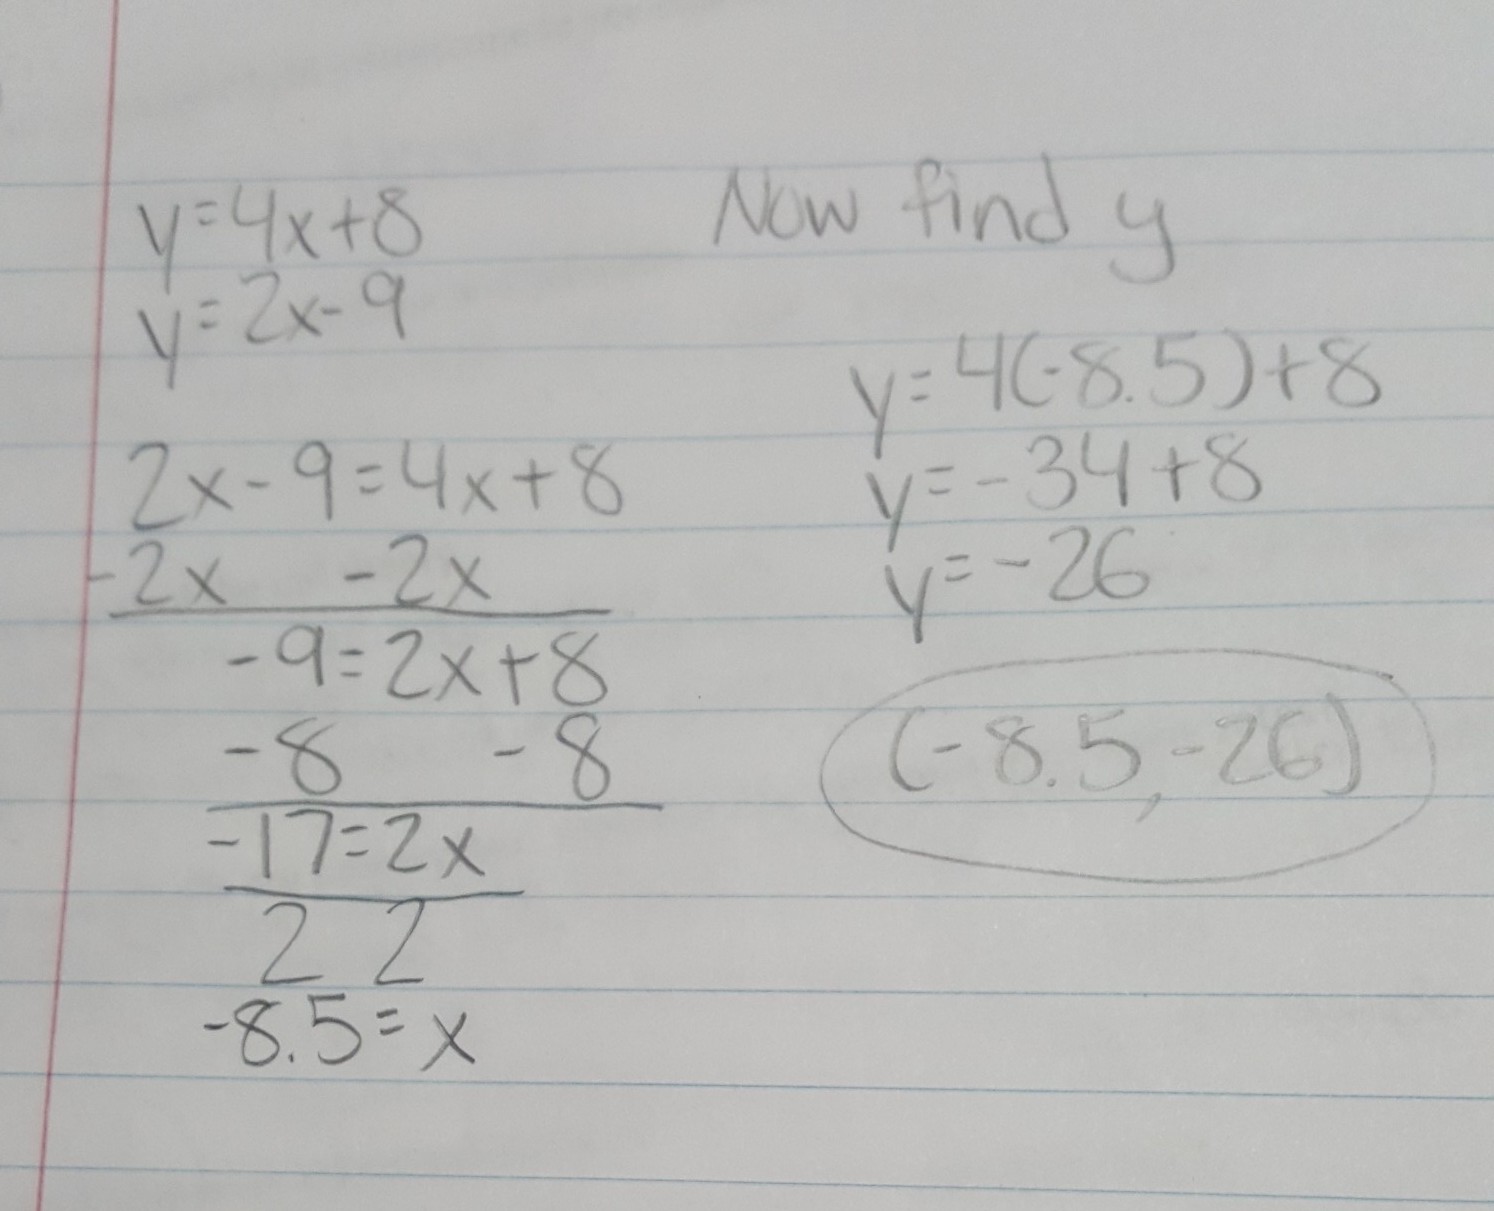 y=4x+8
y=2x-9
2x-9=4x+8
-2x -2x
-9=2x+8
-8 -8
-17=2x
2 2
-8.5=x
Now find y
y=4(-8.5)+8
y=-34+8
y=-26
(-8.5,-26)